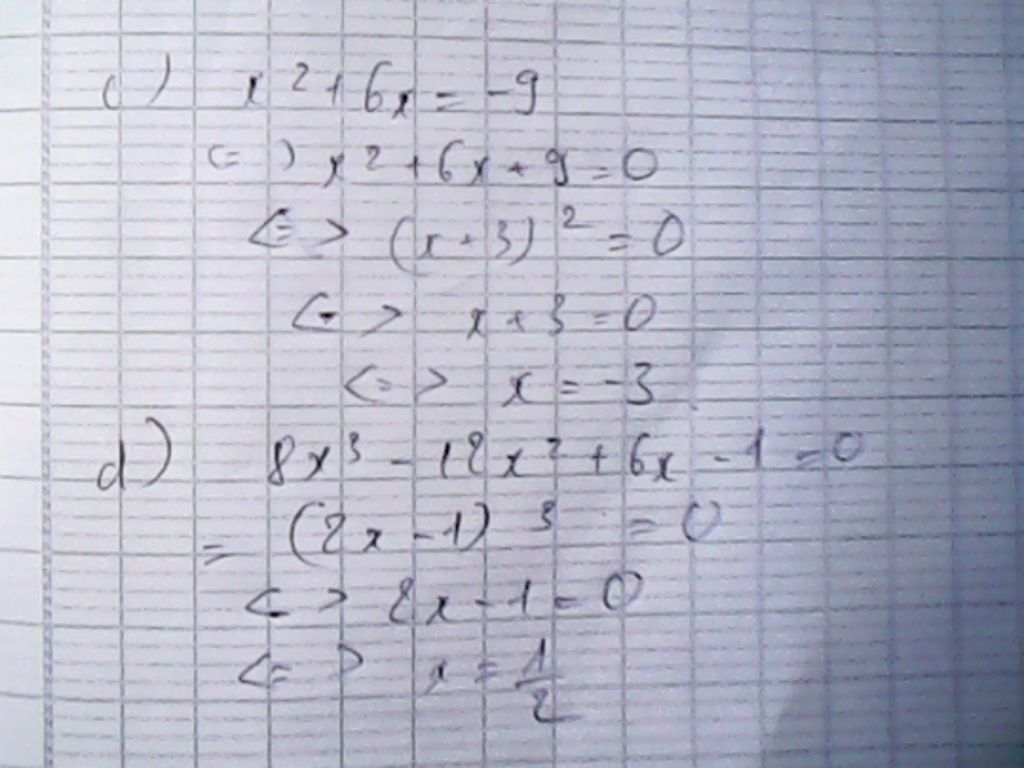 c) x² + 6x = -9
<=> x² + 6x + 9 = 0
<=> (x + 3)² = 0
<=> x + 3 = 0
<=> x = -3
d) 8x³ - 12x² + 6x - 1 = 0
= (2x - 1)³ = 0
<=> 2x - 1 = 0
<=> x = 1/2